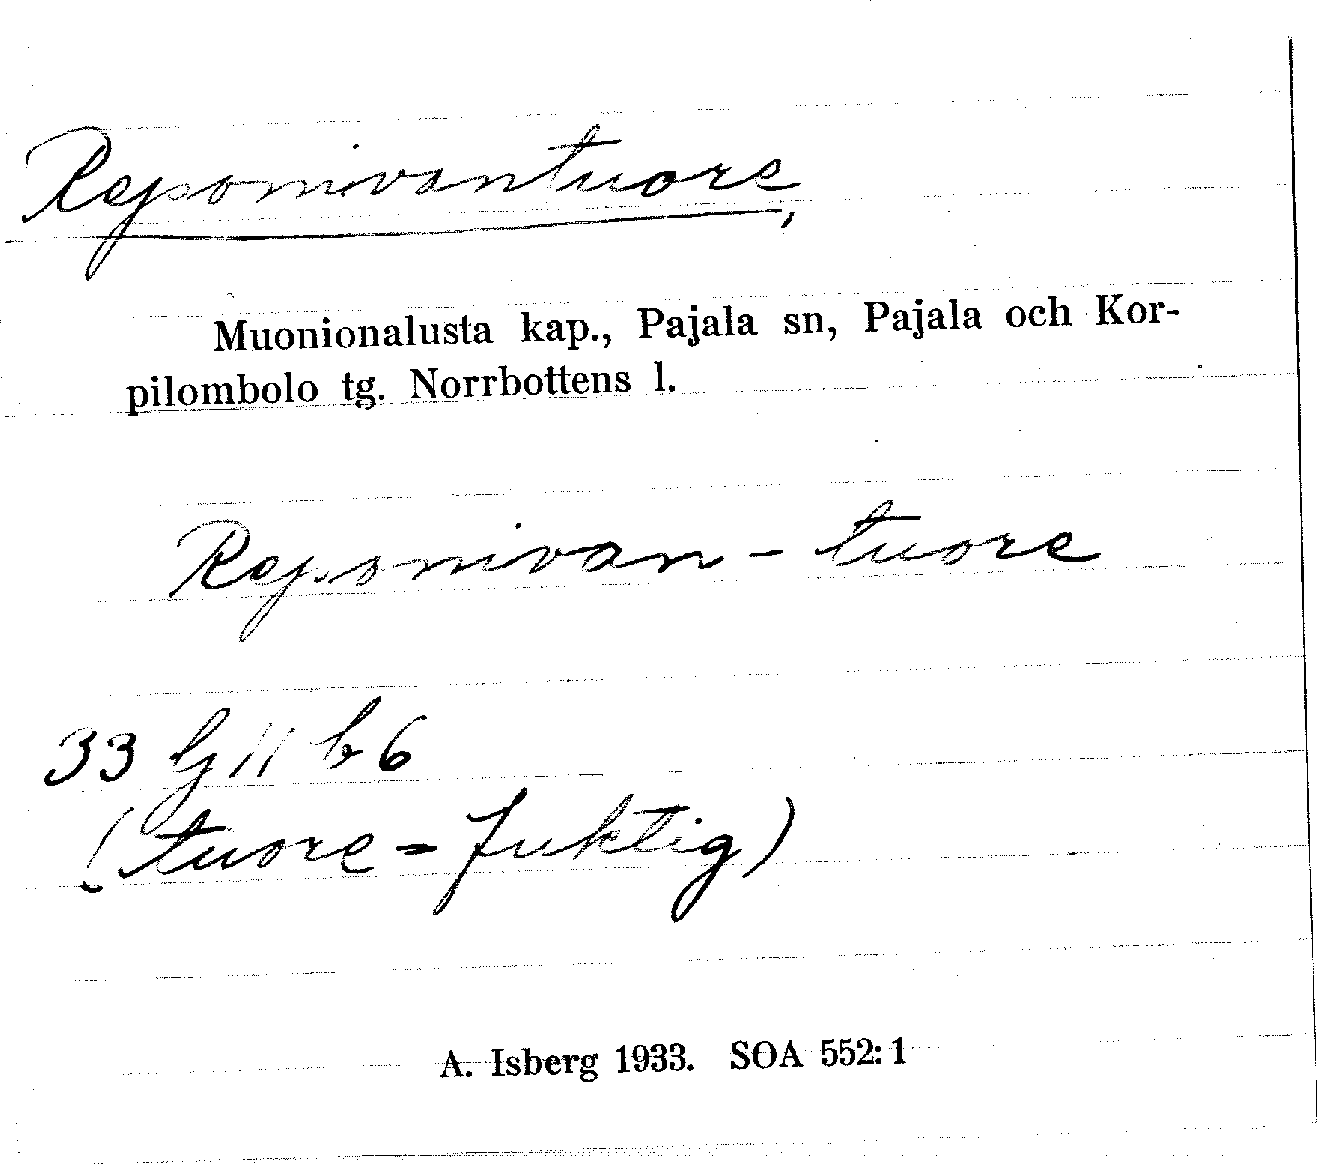 Reponivantuore,
Muonionalusta kap., Pajala sn, Pajala och Kor-
pilombolo tg. Norrbottens l.
Reponivan - tuore
33 lj 11 b 6
(tuore = fuktig)
A. Isberg 1933. SOA 552: 1